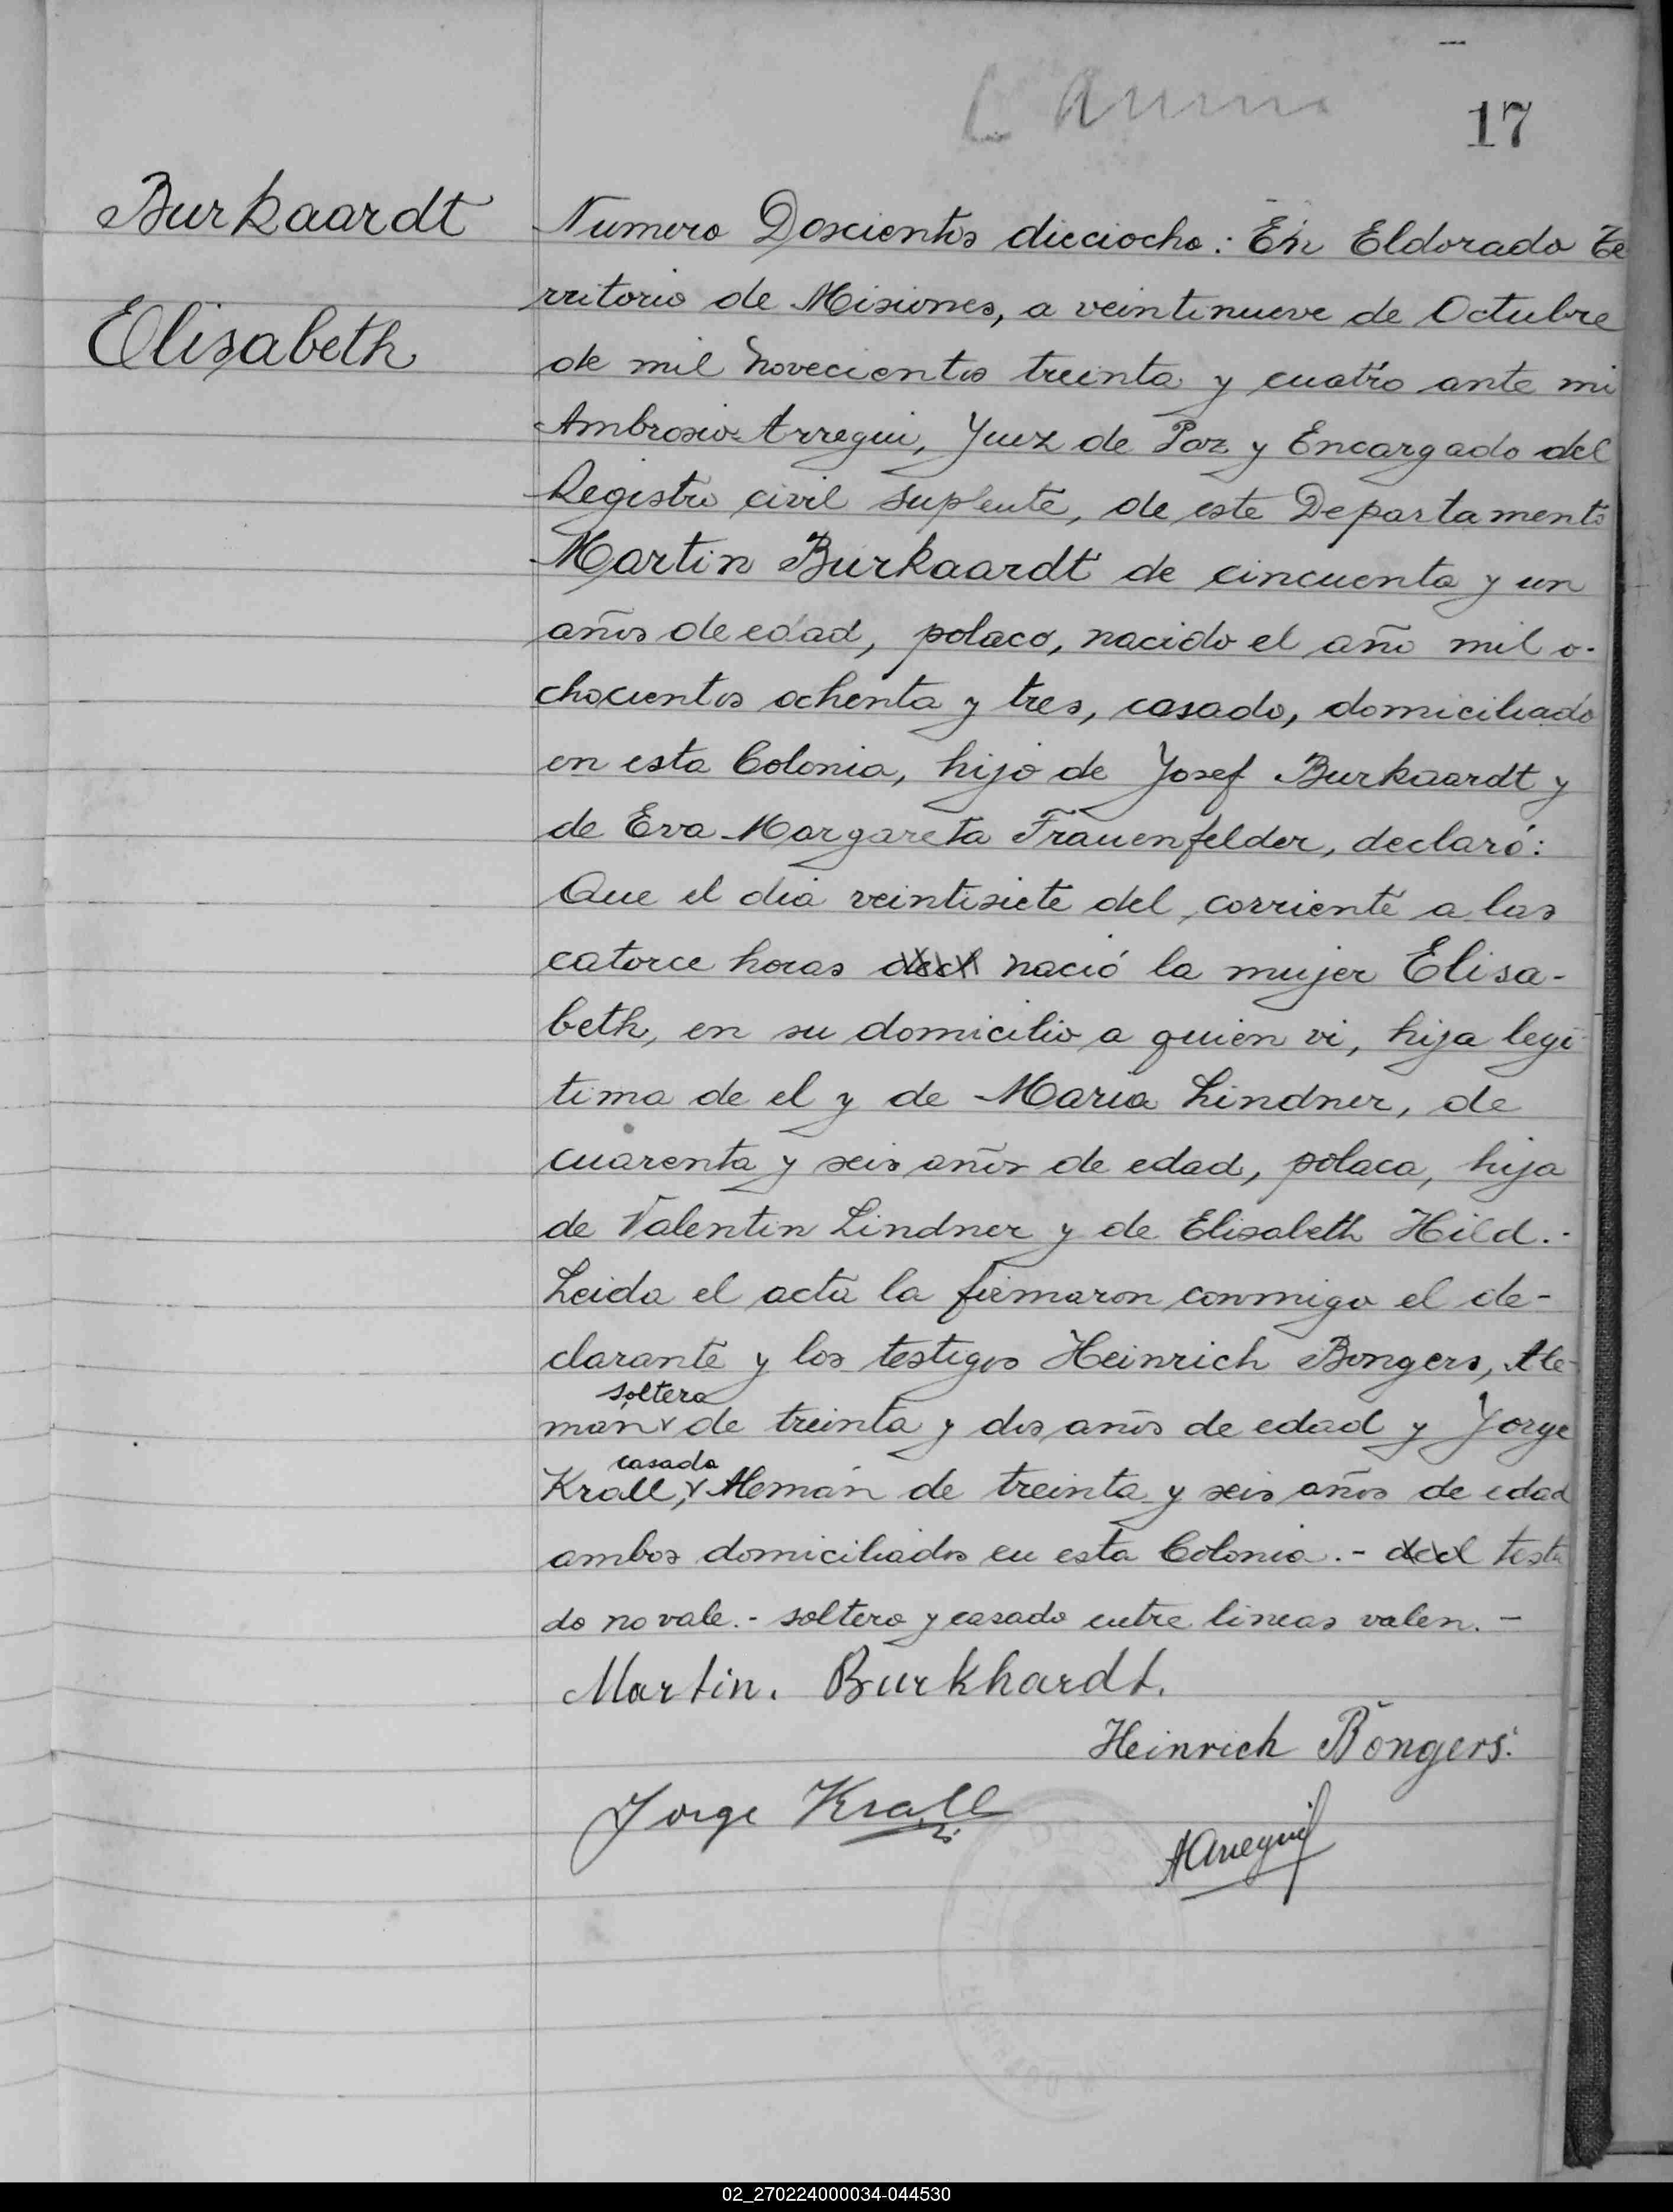 17
Burkaardt
Elisabeth
Numero Doscientos dieciocho: En Eldorado Te
rritorio de Misiones, a veintinueve de Octubre
de mil novecientos treinta y cuatro ante mi
Ambrosio Arregui, Juez de Paz y Encargado del
Registro civil suplente, de este Departamento
Martin Burkaardt de cincuenta y un
años de edad, polaco, nacido el año mil o-
chocientos ochenta y tres, casado, domiciliado
en esta Colonia, hijo de Josef Burkaardt y
de Eva Margareta Frauenfelder, declaró:
Que el dia veintisiete del corriente a las
catorce horas nació la mujer Elisa-
beth, en su domicilio a quien vi, hija legi
tima de el y de Maria Lindner, de
cuarenta y seis años de edad, polaca, hija
de Valentin Lindner y de Elisabeth Hild.-
Leida el acta la firmaron conmigo el de-
clarante y los testigos Heinrich Bongers, Ale-
soltero
man de treinta y dos años de edad y Jorge
casado
Krall, Alemán de treinta y seis años de edad
ambos domiciliados en esta Colonia.- testa
do no vale.- soltero y casado entre lineas valen.-
Martin. Burkhardt.
Heinrich Bongers.
Jorge Krall
AArregui
02_270224000034-044530